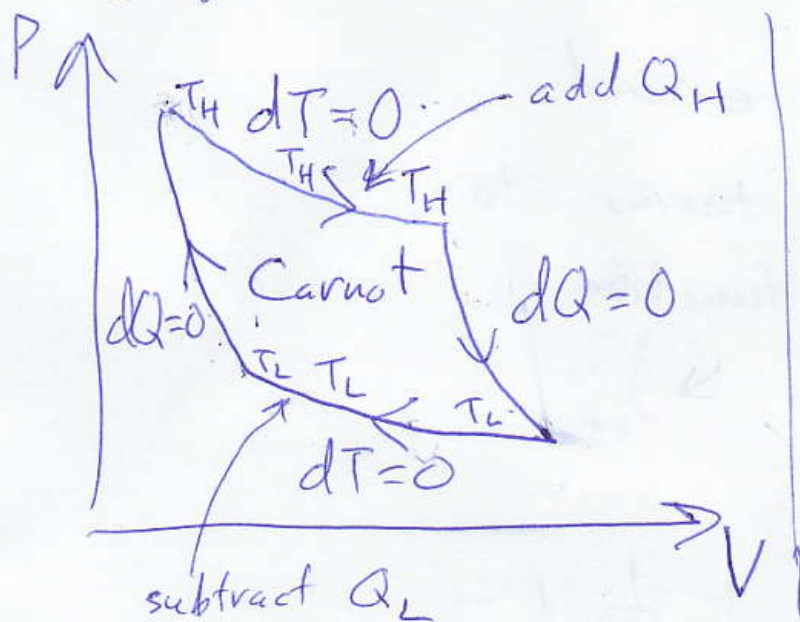 P
T_H dT=0
add Q_H
T_H
T_H
Carnot
dQ=0
dQ=0
T_L
T_L
T_L
dT=0
V
subtract Q_L